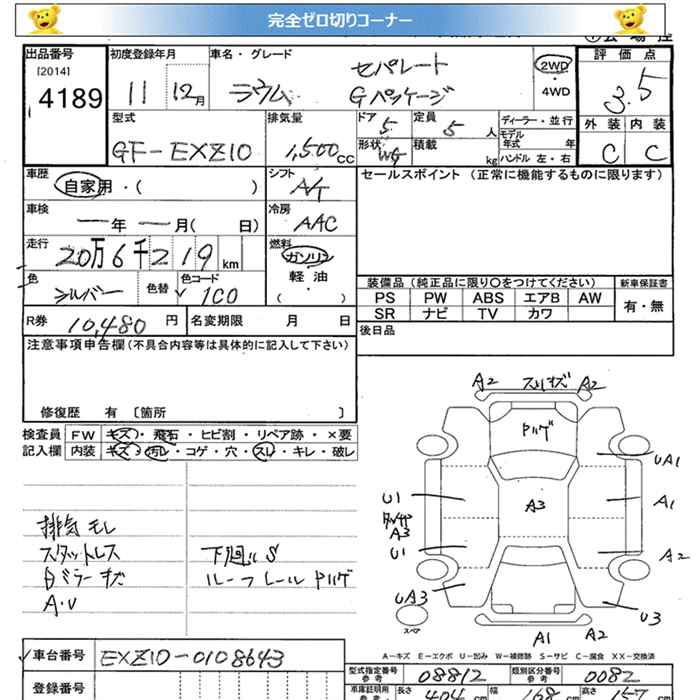 完全ゼロ切りコーナー
出品番号
[2014]
4189
初度登録年月
11 12月
車名・グレード
ラウム
セパレート
Gパッケージ
2WD
・
4WD
評価点
3.5
外装 内装
C C
型式
GF-EXZ10
排気量
1,500cc
ドア 5
定員 5 人
形状 WG
積載 kg
ディーラー・並行
モデル年式 年
ハンドル 左・右
車歴
自家用・( )
シフト
A/T
セールスポイント(正常に機能するものに限ります)
車検
ー年 ー月( 日)
冷房
AAC
走行
20万6千219km
燃料
ガソリン
軽・油
・
( )
色
シルバー
色替
色コード
1C0
装備品(純正品に限り○をつけてください)
新車保証書
PS PW ABS エアB AW
SR ナビ TV カワ
有・無
R券 10,480円
名変期限 月 日
後日品
注意事項申告欄(不具合内容等は具体的に記入して下さい)
修復歴 有 〔箇所 〕
検査員
記入欄
FW キズ・飛石・ヒビ割・リペア跡・×要
内装 キズ・汚レ・コゲ・穴・スレ・キレ・破レ
排気モレ
スタットレス
日ミラーキズ
A・U
下廻りS
ルーフレールPハゲ
A2 スリキズ A2
Pハゲ
UA1
U1
A3
A1
A3
U1
A2
UA3
スペア
U3
A1 A2
A-キズ E-エクボ U-凹み W-補修跡 S-サビ C-腐食 XX-交換済
車台番号
EXZ10-0108643
登録番号
型式指定番号
参考
08812
類別区分番号
参考
0082
車庫証明用
参考
長さ 404 cm
幅 168 cm
高さ 157 cm